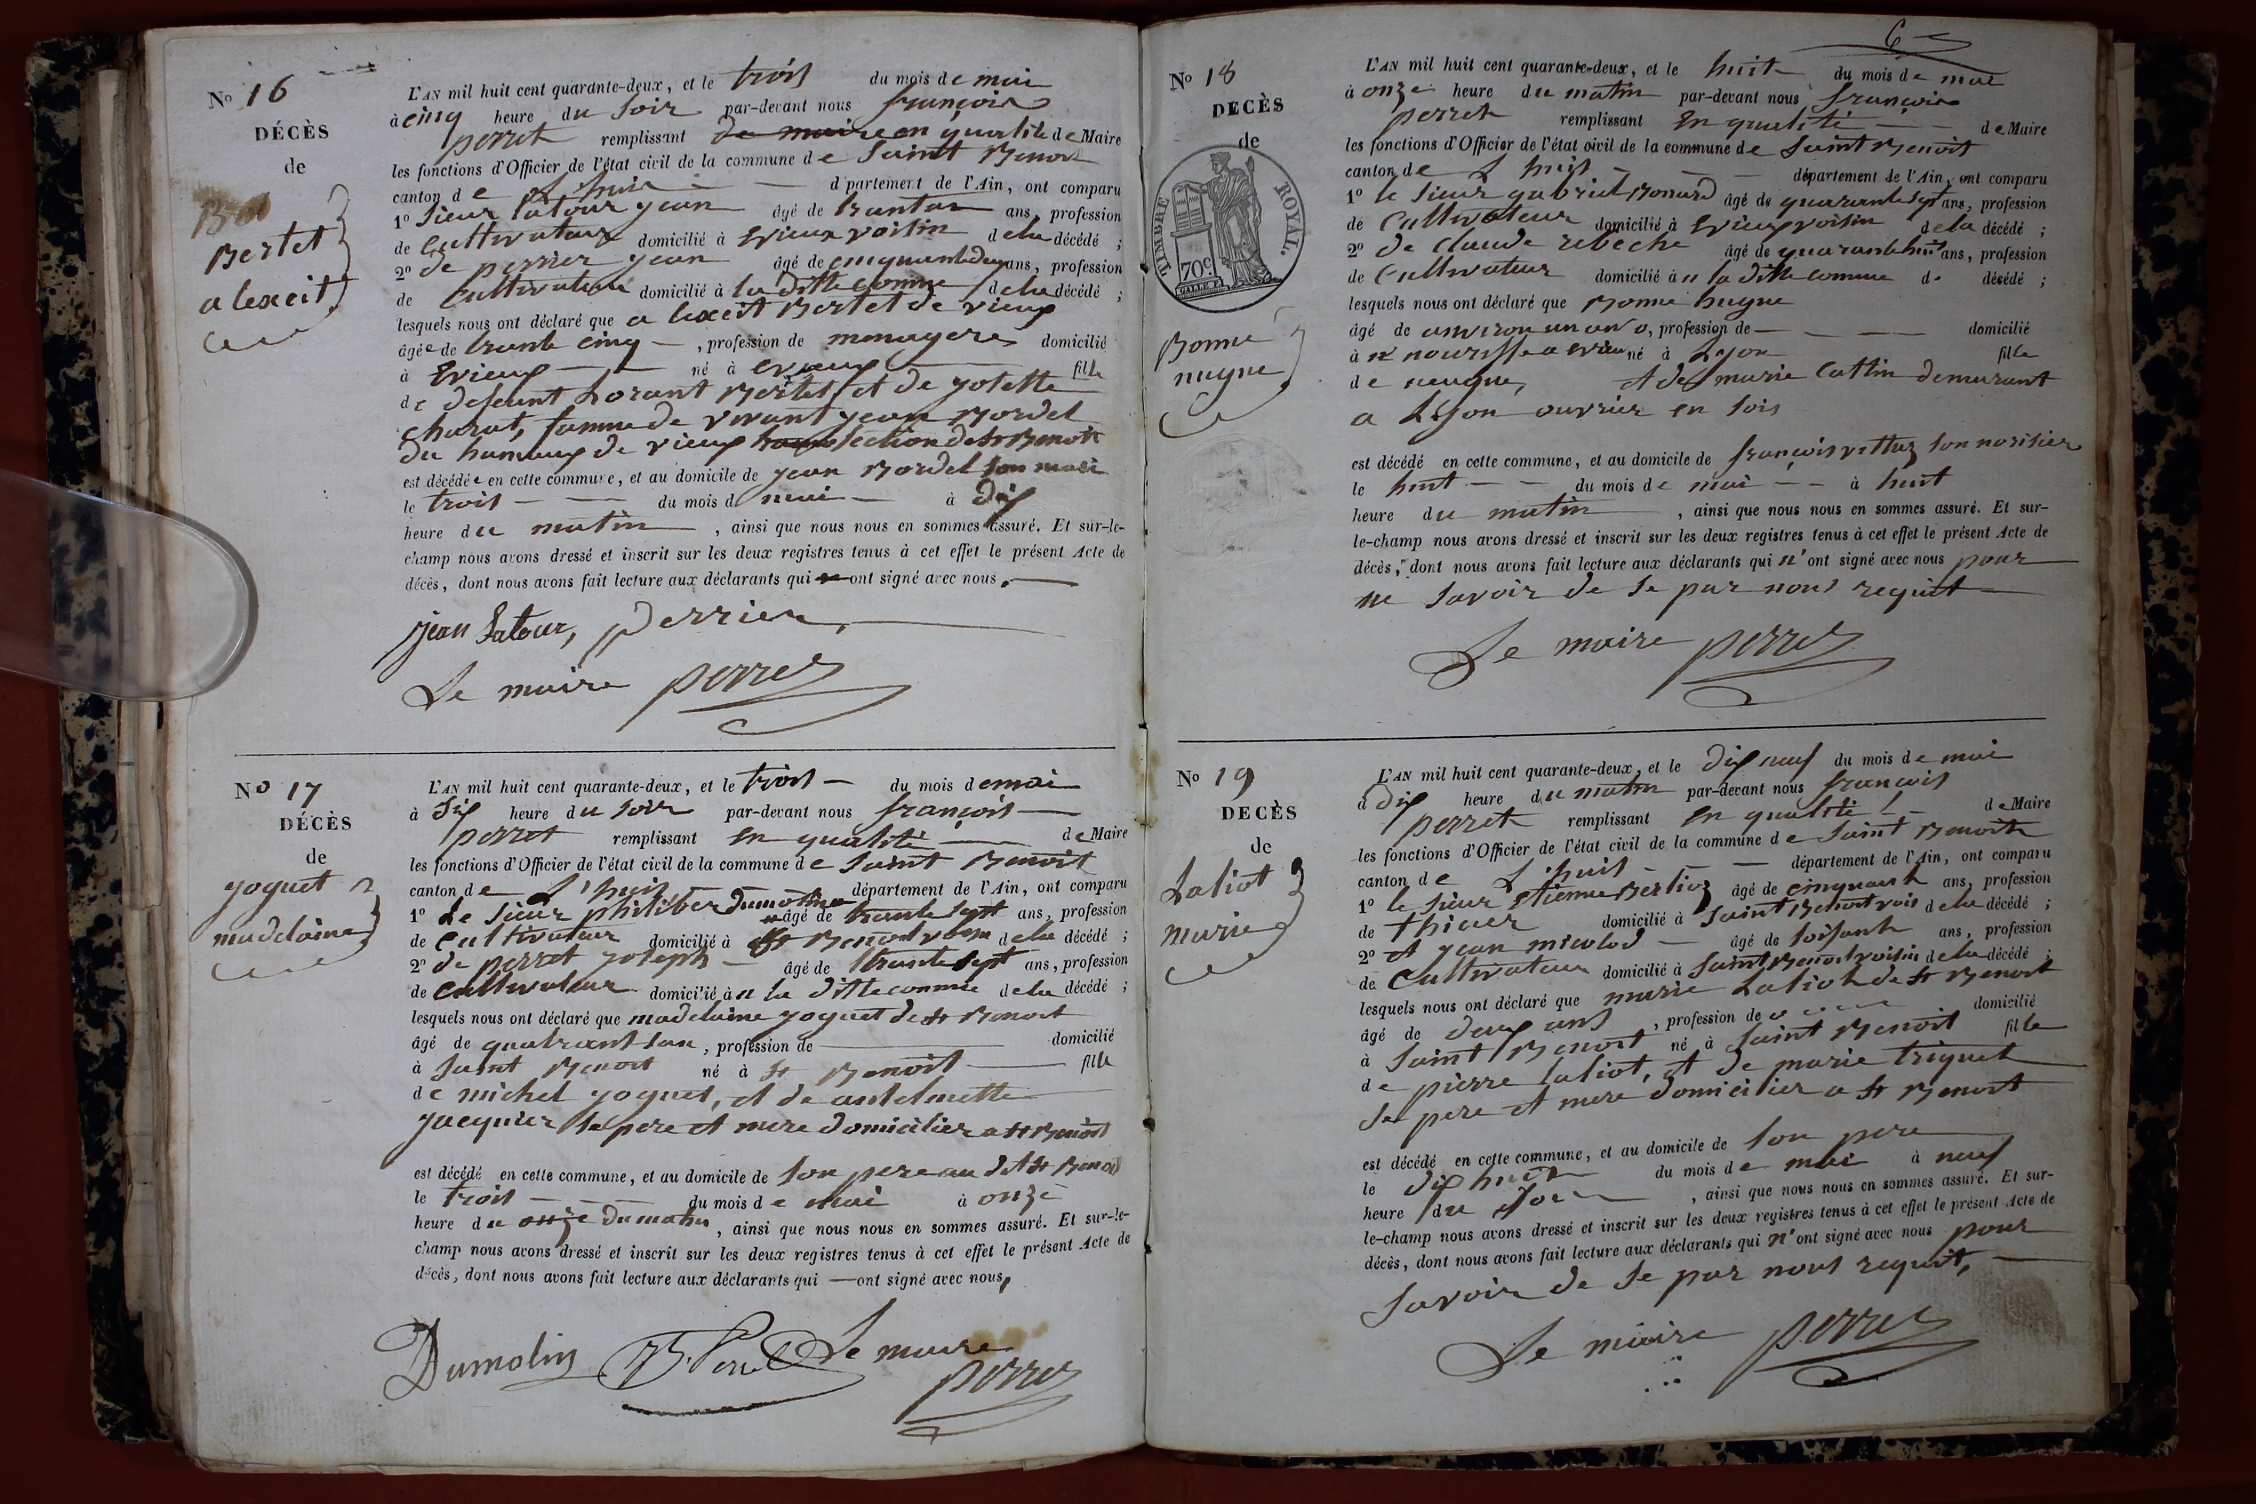 No 16
DÉCÈS
de
Bertet
alexcit
L'AN mil huit cent quarante-deux, et le trois du mois de mai
à cinq heure du soir par-devant nous françois
perret remplissant de maire en qualité de Maire
les fonctions d'Officier de l'état civil de la commune de Saint Benoit
canton de L'huis département de l'Ain, ont comparu
1º Sieur latour jean âgé de trantan ans, profession
de cultivateur domicilié à Evieux voisin de la décédé ;
2º de perrier jean âgé de cinquante deux ans, profession
de cultivateur domicilié à la ditte comme de la décédé ;
lesquels nous ont déclaré que alexcit Bertet de vieux
âgée de trante cinq, profession de menagere domicilié
à Evieux né à Evieux fille
de defeunt Lorant Bertet et de josette
charat, famme de vivant jean Bordel
du hameux de vieux section de St Benoit
est décédée en cette commune, et au domicile de jean Bordel son mari
le trois du mois d mai à Dix
heure du matin, ainsi que nous nous en sommes assuré. Et sur-le-
champ nous avons dressé et inscrit sur les deux registres tenus à cet effet le présent Acte de
décès, dont nous avons fait lecture aux déclarants qui ont signé avec nous.
jean Latour, perrier,
Le maire perret
No 17
DÉCÈS
de
joguet
madelaine
L'AN mil huit cent quarante-deux, et le trois du mois de mai
à Dix heure du soir par-devant nous françois
perret remplissant en qualité de Maire
les fonctions d'Officier de l'état civil de la commune de Saint Benoit
canton de L'huis département de l'Ain, ont comparu
1º Le Sieur philiber Dumolin âgé de trante sept ans, profession
de cultivateur domicilié à St Benoit voisin de la décédé ;
2º de perret joseph âgé de trante sept ans, profession
de cultivateur domicilié à a la ditte commue de la décédé ;
lesquels nous ont déclaré que madelaine joguet de St Benoit
âgé de quatrant san, profession de domicilié
à Saint Benoit né à St Benoit fille
de michel joguet, et de antelmette
jacquier Se pere et mere domicilier a St Benoit
est décédé en cette commune, et au domicile de son pere au dit St Benoit
le trois du mois de mai à onze
heure du onze du matin, ainsi que nous nous en sommes assuré. Et sur-le-
champ nous avons dressé et inscrit sur les deux registres tenus à cet effet le présent Acte de
décès, dont nous avons fait lecture aux déclarants qui ont signé avec nous,
Dumolin Le maire
perret
6
No 18
DECÈS
de
TIMBRE ROYAL.
70c
Bonne
nugue
L'AN mil huit cent quarante-deux, et le huit du mois de mai
à onze heure du matin par-devant nous françois
perret remplissant En qualité de Maire
les fonctions d'Officier de l'état civil de la commune de Saint Benoit
canton de L huis département de l'Ain, ont comparu
1º le Sieur gabriel Bonard âgé de quarante sept ans, profession
de Cultivateur domicilié à Evieux voisin de la décédé ;
2º de Claude rebeche âgé de quarante huit ans, profession
de Cultivateur domicilié à a la ditte commue d. décédé ;
lesquels nous ont déclaré que Bonne hugue
âgé de anviron un an, profession de domicilié
à né à Lyon fille
de neugue, et de marie Cattin demurant
a Lion ouvrier en sois
est décédé en cette commune, et au domicile de françois vettaz son norisier
le huit du mois de mai à huit
heure du matin, ainsi que nous nous en sommes assuré. Et sur-
le-champ nous avons dressé et inscrit sur les deux registres tenus à cet effet le présent Acte de
décès, dont nous avons fait lecture aux déclarants qui n'ont signé avec nous pour
ne savoir de se par nous requit
Le maire perret
No 19
DECÈS
de
Laliot
marie
L'AN mil huit cent quarante-deux, et le dix neuf du mois de mai
à Dix heure du matin par-devant nous françois
perret remplissant En qualité de Maire
les fonctions d'Officier de l'état civil de la commune de Saint Benoit
canton de L'huis département de l'Ain, ont comparu
1º le sieur Etienne Berlioz âgé de cinquante ans, profession
de thicier domicilié à Saint Benoit vois de la décédé ;
2º et jean micolod âgé de soisante ans, profession
de Cultivateur domicilié à Saint Benoit voisin de la décédé ;
lesquels nous ont déclaré que marie Laliot de St Benoit
âgé de deux ans, profession de domicilié
à Saint Benoit né à Saint Benoit fille
de pierre laliot, et de marie triquet
Se pere et mere domicilier a St Benoit
est décédé en cette commune, et au domicile de son pere
le dix huit du mois de mai à neuf
heure du soir, ainsi que nous nous en sommes assuré. Et sur-
le-champ nous avons dressé et inscrit sur les deux registres tenus à cet effet le présent Acte de
décès, dont nous avons fait lecture aux déclarants qui n'ont signé avec nous pour
savoir de se par nous requit,
Le maire perret